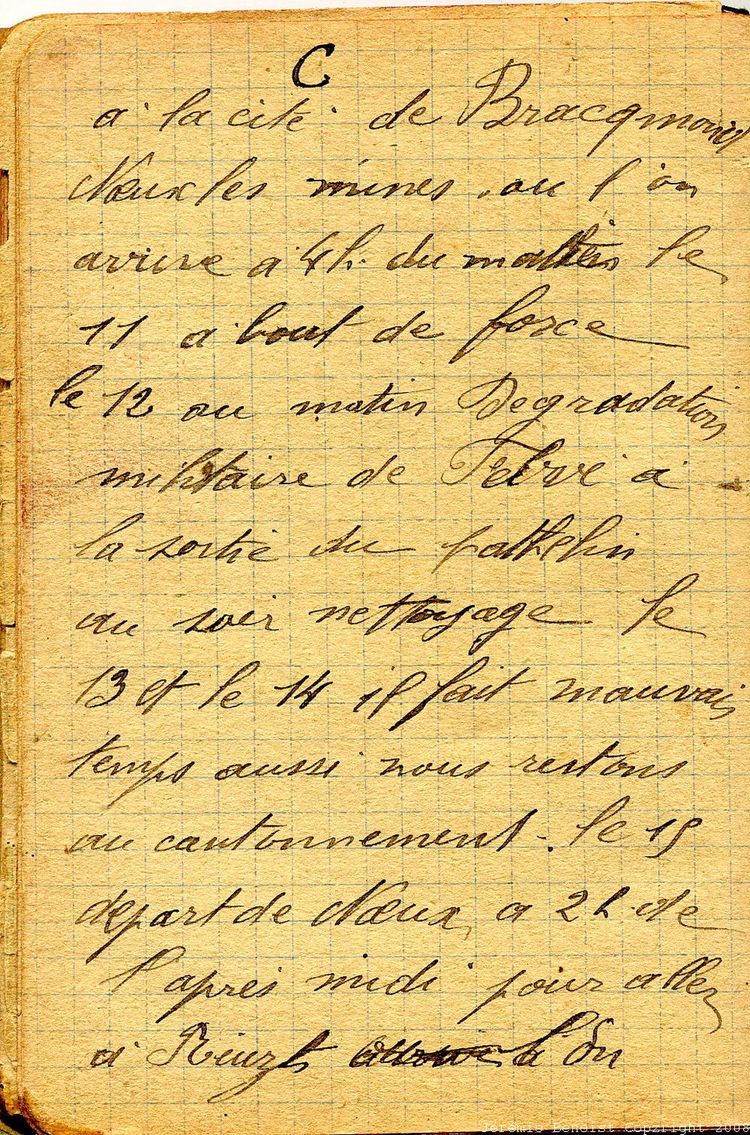 C
a la cité de Bracqmont
Nœux les mines. ou l'on
arrive a 4h. du matin le
11 a bout de force
le 12 au matin Degradation
militaire de Febvé a
la sortie du patelin
au soir nettoyage le
13 et le 14 il fait mauvais
temps aussi nous restons
au cantonnement. le 15
depart de Nœux a 2h. de
l'aprés midi pour aller
a l'On
Jeremie Beneist Copyright 2008